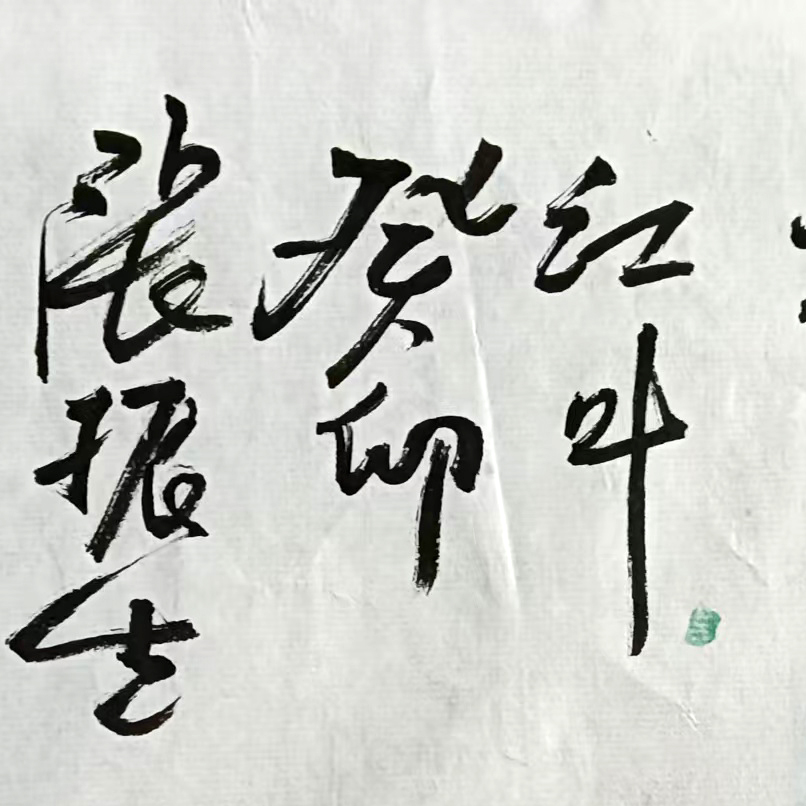 红叶
癸卯
张振生